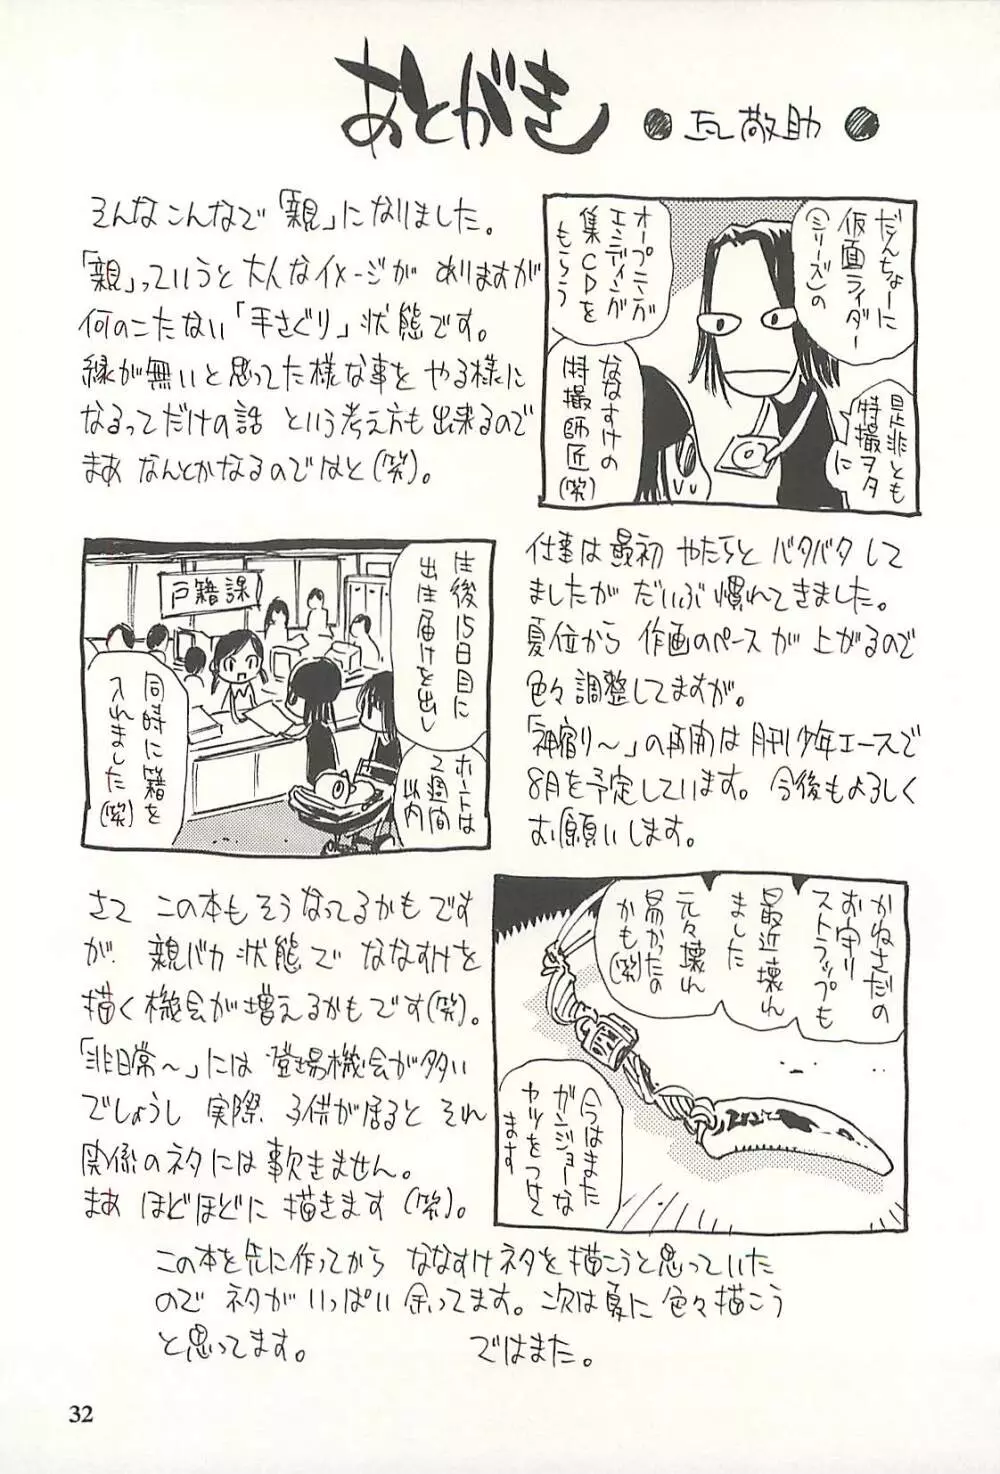 あとがき
●瓦敬助●
そんなこんなで「親」になりました。
「親」っていうと大人なイメージがありますが
何のこたない「手さぐり」状態です。
縁が無いと思ってた様な事をやる様に
なるってだけの話という考え方も出来るので
まあなんとかなるのではと(笑)。
だんちょーに
仮面ライダー
(シリーズ)の
オープニング
エンディング
集CDを
もらう
是非とも
特撮ヲタ
に
ななすけの
特撮師匠
(笑)
仕事は最初やたらとバタバタして
ましたがだいぶ慣れてきました。
夏位から作画のペースが上がるので
色々調整してますが。
「神宿り〜」の再開は月刊少年エースで
8月を予定しています。今後もよろしく
お願いします。
生後15日目に
出生届けを出し
ホントは
2週間
以内
戸籍課
同時に籍を
入れました
(笑)
さてこの本もそうなってるかもです
が親バカ状態でななすけを
描く機会が増えるかもです(笑)。
「非日常〜」には登場機会が多い
でしょうし実際子供が居るとそれ
関係のネタには事欠きません。
まあほどほどに描きます(笑)。
かねさだの
お守り
ストラップも
最近壊れ
ました
元々壊れ
易かったの
かも(笑)
今はまた
ガンジョーな
ヤツをつけて
ます
この本を先に作ってからななすけネタを描こうと思っていた
のでネタがいっぱい余ってます。次は夏に色々描こう
と思ってます。ではまた。
32